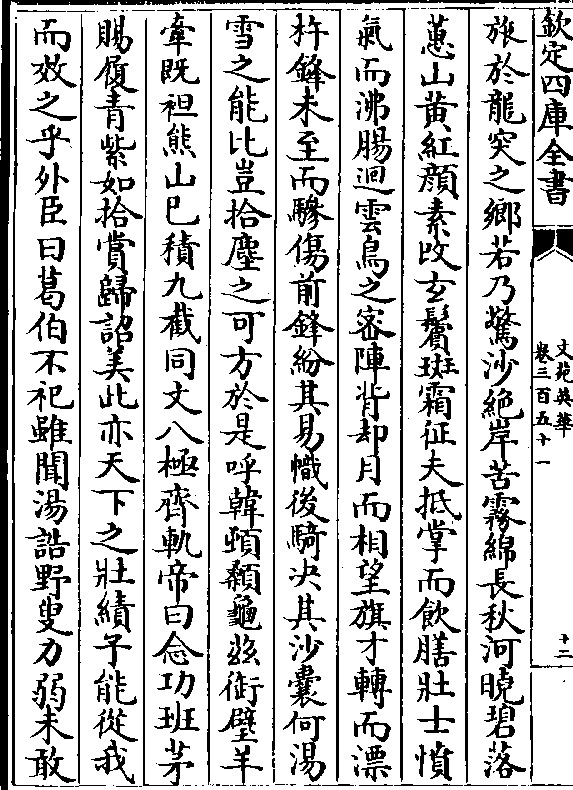 欽定四庫全書
文苑英華
卷三百五十一
十二
旅於龍突之鄉若乃驚沙絶岸苦霧綿長秋河曉碧落
蕙山黄紅顔素改玄鬢斑霜征夫抵掌而飲膳壯士憤
氣而沸腸迴雲鳥之密陣背却月而相望旗才轉而漂
杵鋒未至而驂傷前鋒紛其易幟後騎决其沙囊何湯
雪之能比豈拾塵之可方於是呼韓頓顙龜兹銜璧羊
牽既袒熊山已積九截同文八極齊軌帝曰念功班茅
賜履青紫如拾賞歸詔美此亦天下之壯績子能從我
而效之乎外臣曰葛伯不祀雖聞湯誥野叟力弱未敢